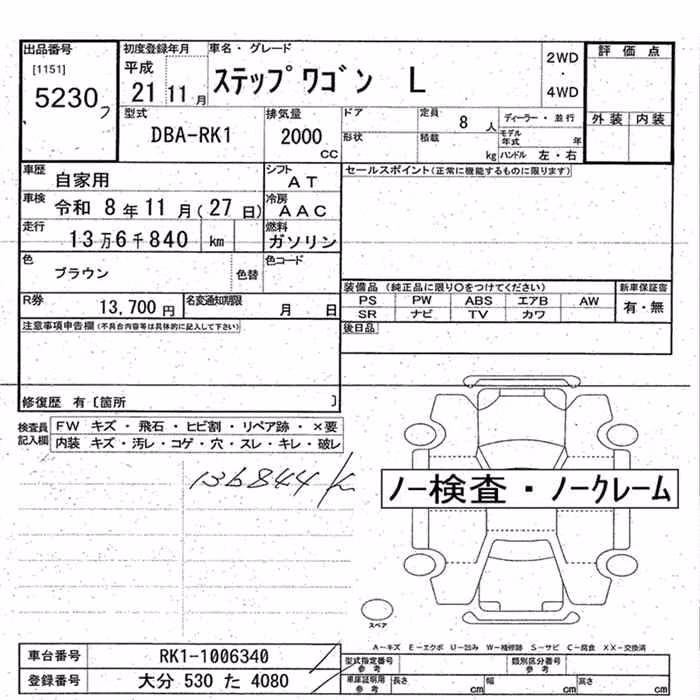 出品番号
[1151]
5230
初度登録年月
平成
21 11 月
車名・グレード
ステップワゴン L
2WD
・
4WD
評価点
外装 内装
型式
DBA-RK1
排気量
2000
CC
ドア
形状
定員
8 人
積載
kg
ディーラー・並行
モデル年式 年
ハンドル 左・右
車歴
自家用
シフト
AT
車検
令和 8 年 11 月 (27 日)
冷房
AAC
走行
13 万 6 千 840 km
燃料
ガソリン
色
ブラウン
色替
色コード
R券
13,700 円
名変通知期限
月 日
セールスポイント(正常に機能するものに限ります)
装備品 (純正品に限り○をつけてください)
PS PW ABS エアB AW
SR ナビ TV カワ
新車保証書
有・無
後日品
注意事項申告欄(不具合内容等は具体的に記入して下さい)
修復歴 有〔箇所 〕
検査員記入欄
FW キズ・飛石・ヒビ割・リペア跡・×要
内装 キズ・汚レ・コゲ・穴・スレ・キレ・破レ
136844 K
ノー検査・ノークレーム
スペア
A-キズ E-エクボ U-凹み W-補修跡 S-サビ C-腐食 XX-交換済
車台番号
RK1-1006340
登録番号
大分 530 た 4080
型式指定番号
参考
類別区分番号
参考
車庫証明用
参考
長さ cm 幅 cm 高さ cm